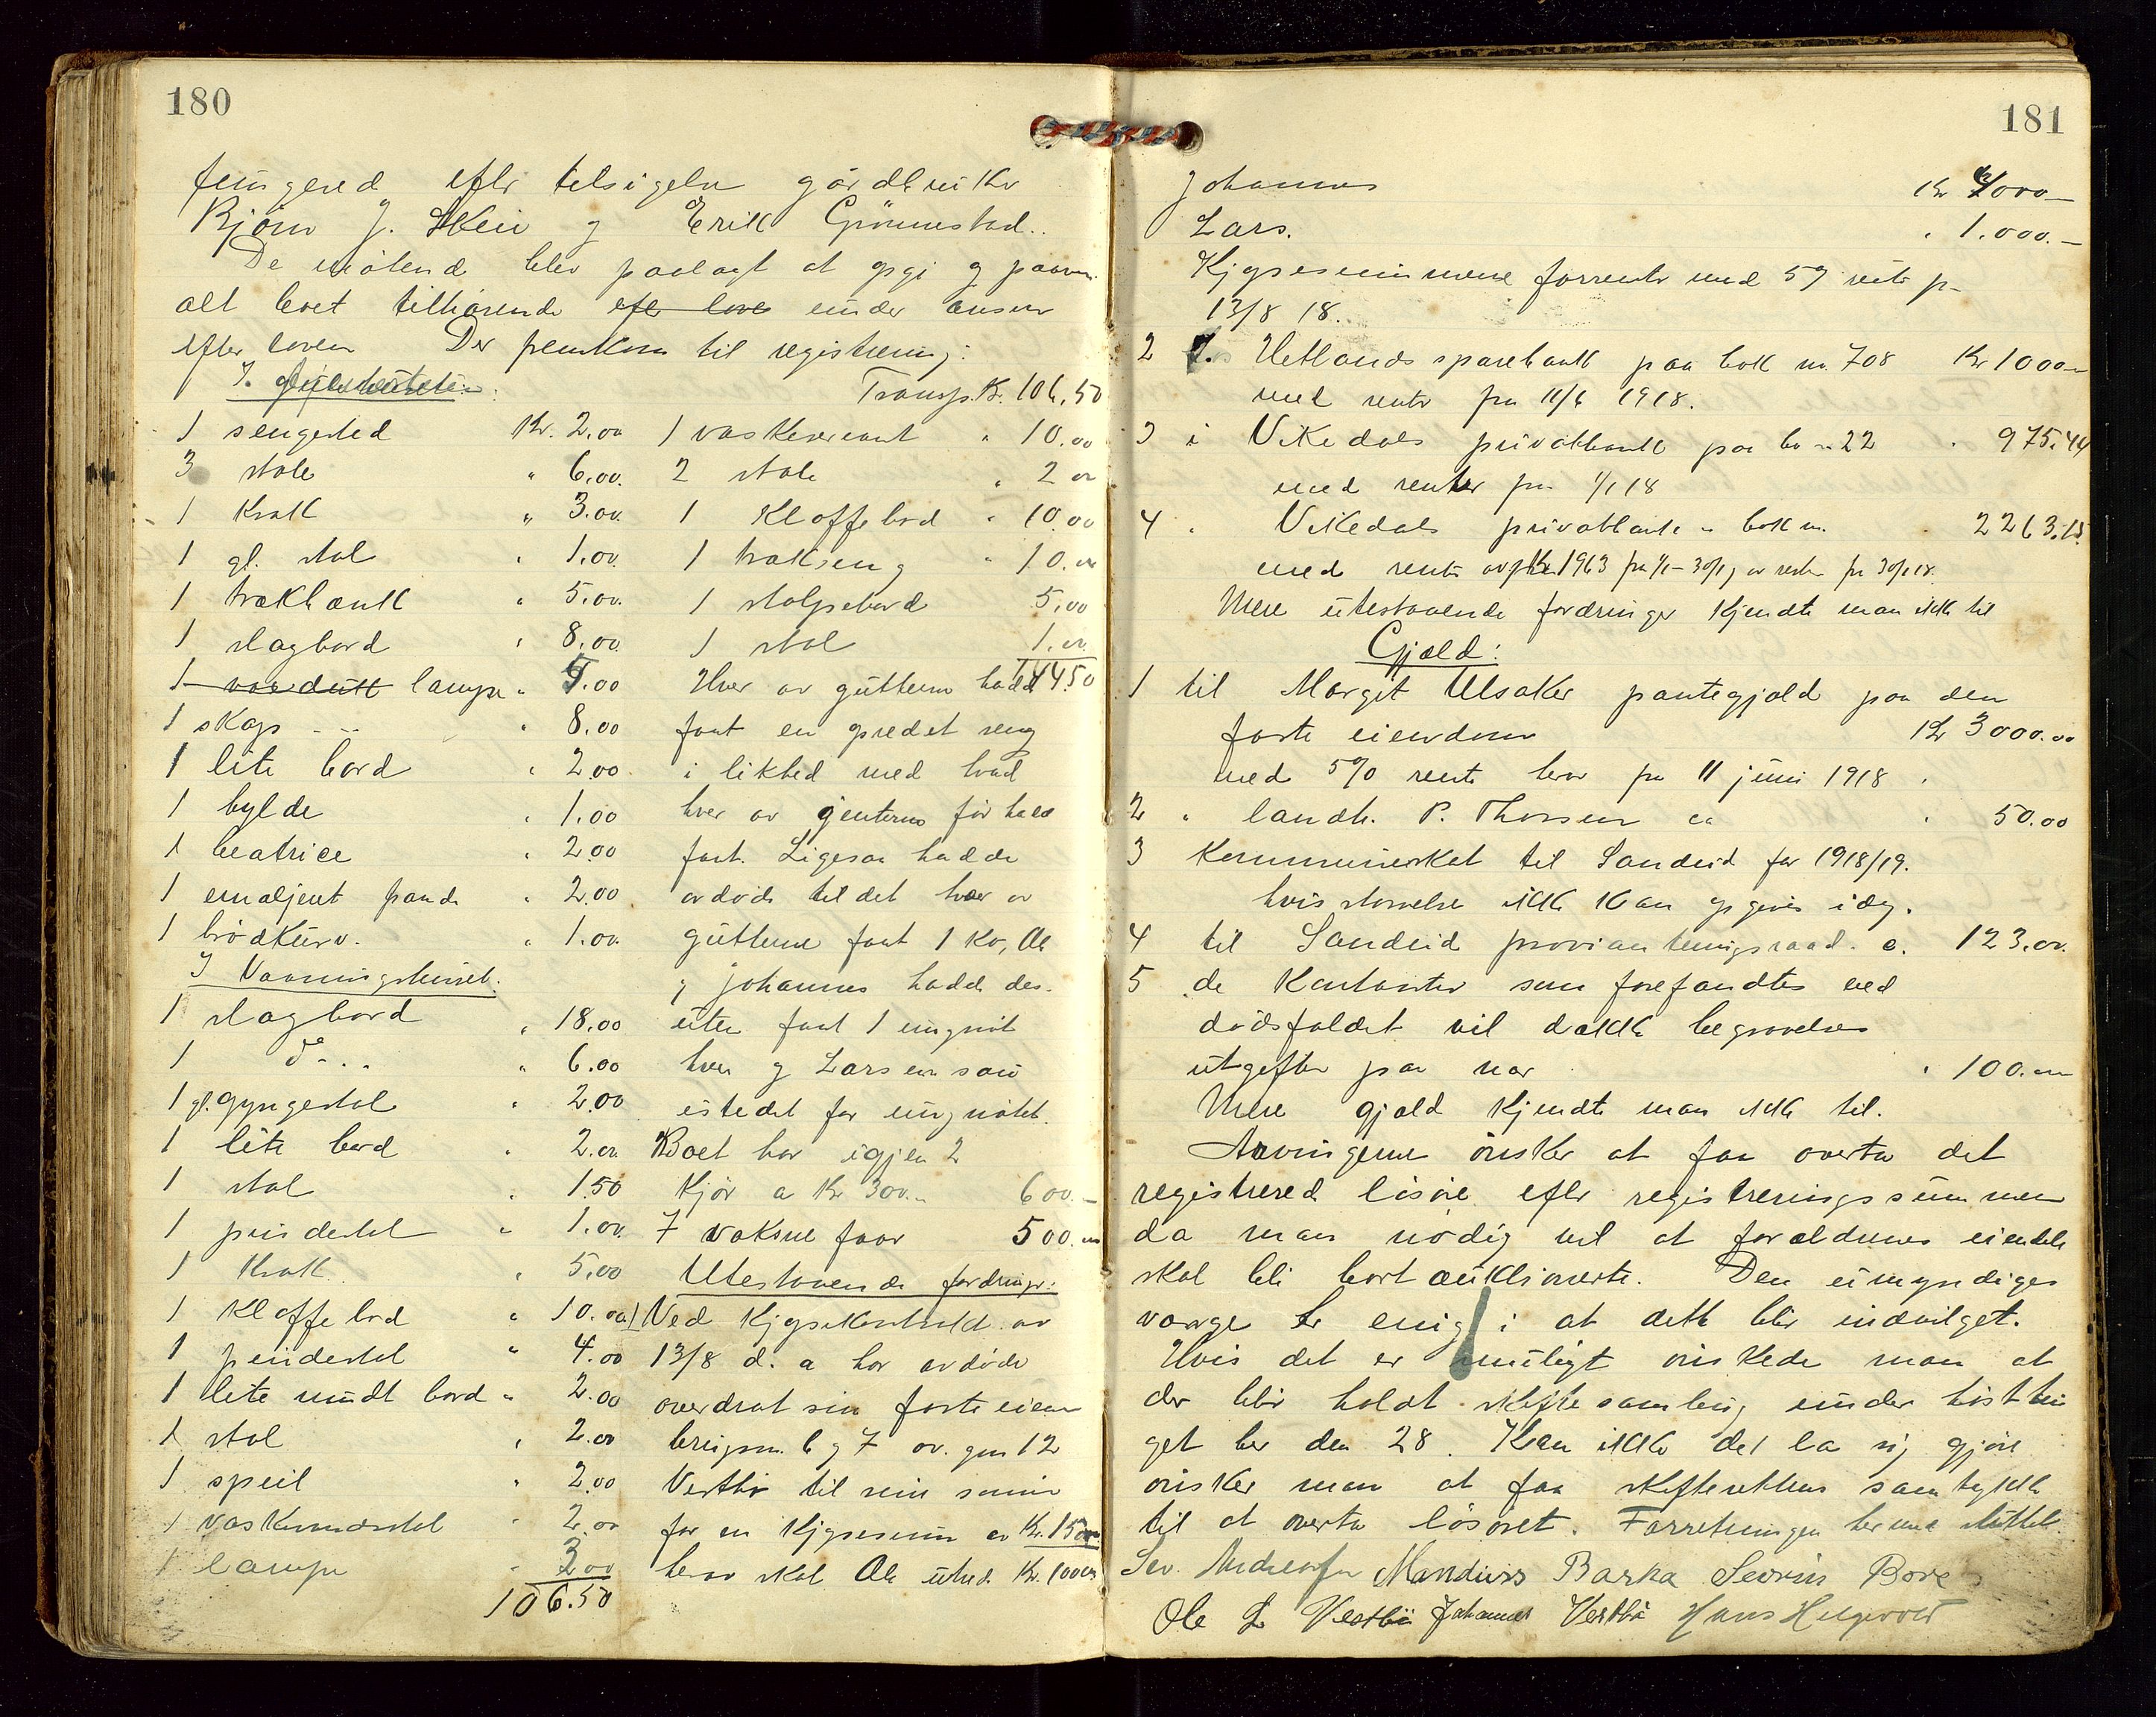 180
fungered efter tilsigelse gårdbruker
Bjørn J. Skeie og Erik Grønnestad.
De møtende blev paalagt at opgi og paavise
alt boet tilhørende efter loven under ansvar
efter loven Der fremkom til registrering:
1 sengested Kr. 2.00
3 stole " 6.00
1 krak " 3.00
1 gl. stol " 1.00
1 trækbænk " 5.00
1 slagbord " 8.00
1 lampe " 4.00
1 skap " 8.00
1 lite bord " 2.00
1 hylde " 1.00
1 beatrice " 2.00
1 emaljert pande " 2.00
1 brødkurv. " 1.00
I Vaaningshuset.
1 slagbord " 18.00
1 do " 6.00
1 gl. gyngestol " 2.00
1 lite bord " 2.00
1 stol " 1.50
1 pindestol " 1.00
1 krak " 5.00
1 Kloffebord " 10.00
1 pindestol " 4.00
1 lite rundt bord " 2.00
1 stol " 2.00
1 speil " 2.00
1 vaskevandsstol " 2.00
1 lampe " 3.00
106.50
Transp. Kr. 106.50
1 vaskeservant " 10.00
2 stole " 2.00
1 Kloffebord " 10.00
1 trækseng " 10.00
1 stolpebord 5.00
1 stol 1.00
144.50
Hver av gutterne hadde
faat en opredet seng
i likhed med hvad
hver av jenterne før havde
faat. Ligesaa hadde
avdøde tildelt hver av
gutterne faat 1 ko, Ole
og Johannes hadde des-
uten faat 1 ungnøt
hver og Lars en sau
istedet for ungnøtet.
Boet har igjen 2
kjør a Kr 300.- 600.-
7 voksne faar 500.00
Utestaaende fordringer:
1) Ved Kjøpekontrakt av
13/8 d. a har avdøde
overdrat sin faste eien-
bruksn. 6 og 7 av gn 12
Vestbø til sine sønner
for en kjøpesum av Kr. 15000
herav skal Ole utrede Kr. 10000
181
Johannes Kr 4000-
Lars. " 1.000.-
Kjøpesummene forrentes med 5% rente fra
13/8 18.
2 I. Hetlands sparebank paa bok nr. 708 Kr 1000-
med rente fra 11/6 1918.
3 i Vikedals privatbank paa bok nr 22 " 975.44
med renter fra 1/1 18
4 " Vikedals privatbank " bok nr. " 2263.15
med rente av Kr 1963 fra 1/1 - 30/1 og av resten fra 30/1 18.
Mere utestaaende fordringer kjendte man ikke til
Gjæld:
1 til Marget Ulsaker pantegjæld paa den
faste eiendom Kr 3000.00
med 5% rente herav fra 11 juni 1918
2 " landh. P. Thorsen ca " 50.00
3 Kommuneskat til Sandeid for 1918/19.
hvis størrelse ikke kan opgives idag.
4 til Sandeid provianteringsraad ca. 123.00
5 de Kontanter som forefandtes ved
dødsfaldet vil dække begravelses
utgifter paa nær " 100.00
Mere gjæld kjendte man ikke til.
Arvingerne ønsker at faa overta det
registrerede løsøre efter registreringssummen
da man nødig vil at forældrenes eiendele
skal bli bortauksjonerte. Den umyndiges
værge er enig i at dette blir indvilget.
Hvis det er muligt ønskede man at
der blir holdt skiftesamling under høstthin
get her den 28. Kan ikke det la sig gjøre
ønsker man at faa skifterettens samtykke
til at overta løsøret. Forretningen hermed sluttet.
Sev. Andreassen Mandius Barka Sevrin Bore
Ole L Vestbø Johannes Vestbø Hans Helgevold